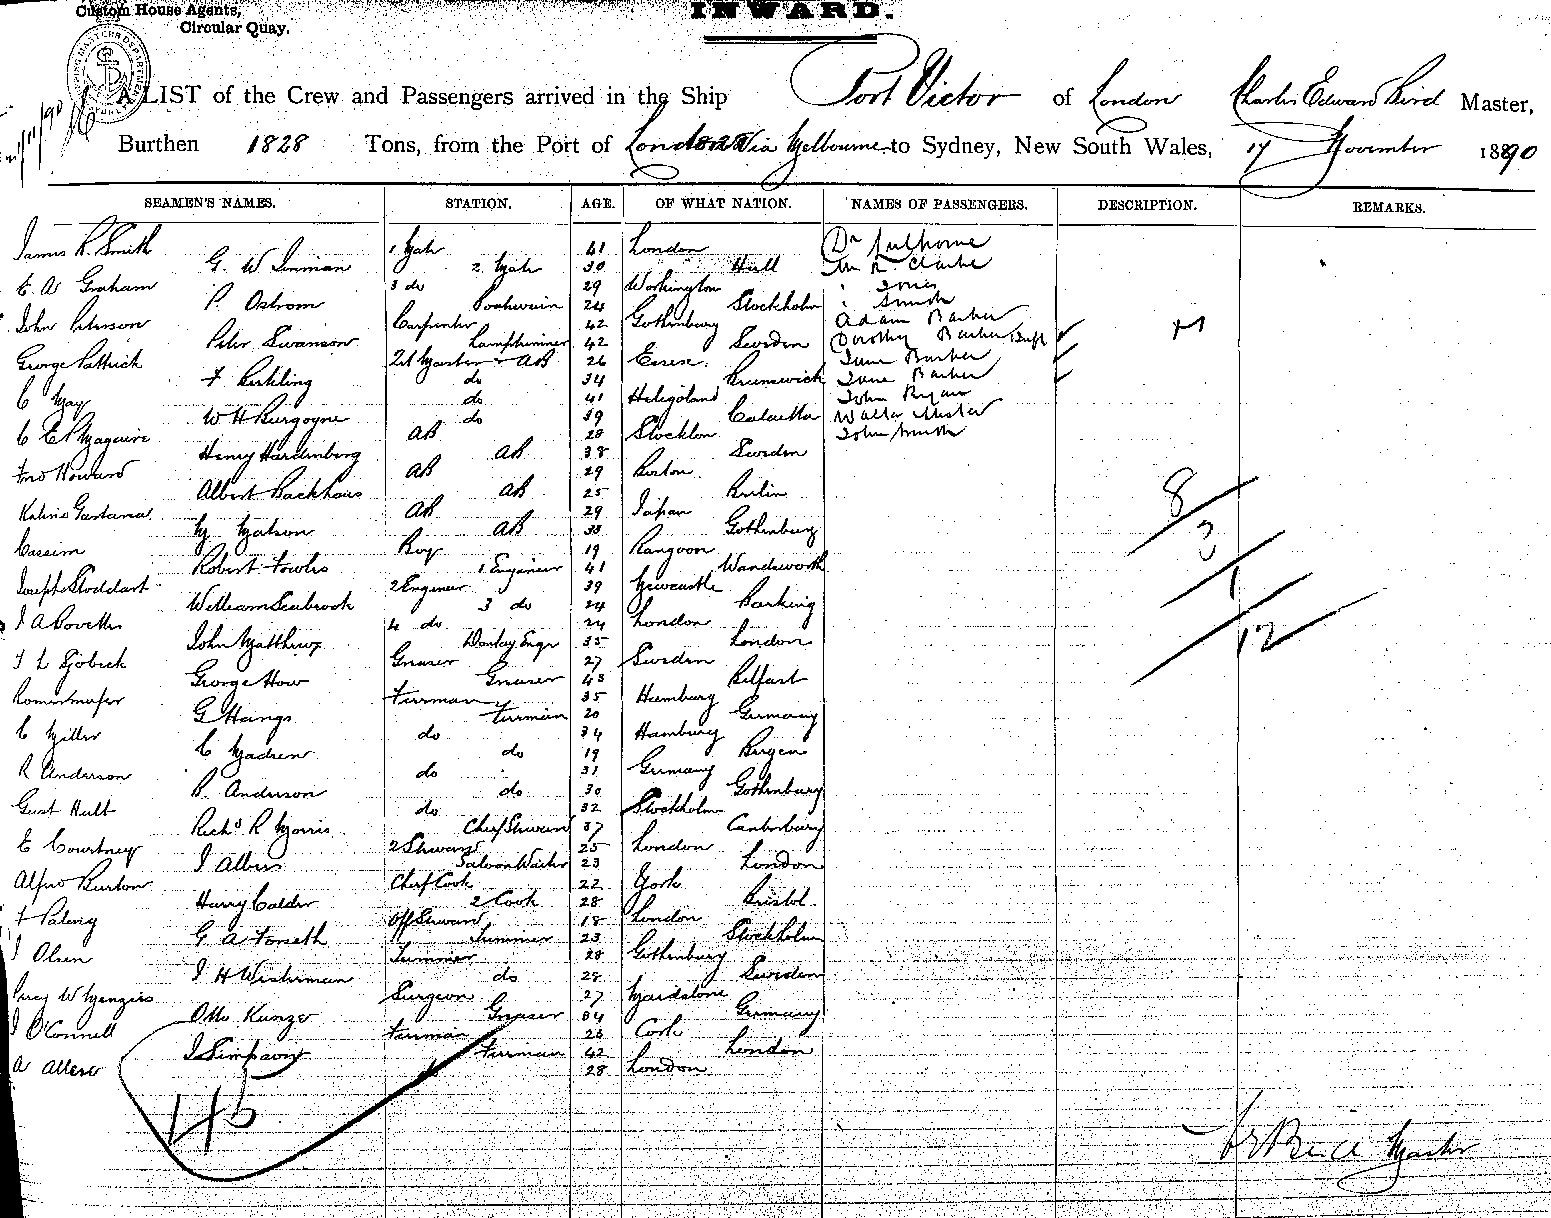 Custom House Agents,
Circular Quay.
INWARD.
A LIST of the Crew and Passengers arrived in the Ship Port Victor of London Charles Edward Bird Master,
Burthen 1828 Tons, from the Port of London Via Melbourne to Sydney, New South Wales, 17 November 1890
SEAMEN'S NAMES. STATION. AGE. OF WHAT NATION. NAMES OF PASSENGERS. DESCRIPTION. REMARKS.
James R. Smith 1 Mate 41 London Dr
G. W. Inman 2 Mate 30 Hull Mr R. Clarke
E A Graham 3 do 29 Workington " Jones
P. Ostrom Boatswain 24 Stockholm " Smith
John Peterson Carpenter 42 Gothenburg Adam Barker
Peter Swanson Lamptrimmer 42 Sweden Dorothy Barker
George Pattrick & AB 26 Essex Jane Barker
F Berkling do 34 Brunswick Jane Barker
C May do 41 Heligoland John Ryan
W H Burgoyne do 39 Calcutta Walter
C E Maguire AB 28 Stockton John Smith
Henry Hardenberg AB 38 Sweden
Fred Howard AB 29 Boston
Albert Backhaus AB 25 Berlin
AB 29 Japan
M Matson AB 33 Gothenburg
Casseim Boy 19 Rangoon
Robert Fowles 1 Engineer 41 Wandsworth
Joseph Stoddart 2 Engineer 39 Newcastle
William Seabrook 3 do 24 Barking
J A 4 do 24 London
John Matthews Donkey Engr 35 London
J L Sjobeck Greaser 27 Sweden
George How Greaser 43 Belfast
Fireman 35 Hamburg
G Haings Fireman 20 Germany
C Miller do 34 Hamburg
C Madsen do 19 Bergen
R Anderson do 31 Germany
P. Anderson do 30 Gothenburg
Gust Hult do 32 Stockholm
Richd R Morris Chief Steward 37 Canterbury
E Courtney 2 Steward 25 London
J Albers Saloon Waiter 23 London
Alfred Burton Chief Cook 22 York
Harry Calder 2 Cook 28 Bristol
F Off Steward 18 London
G A Forseth Trimmer 23 Stockholm
J Olsen Trimmer 28 Gothenburg
J H Westerman do 28 Sweden
Percy W Menzies Surgeon 27 Maidstone
Otto Kunze Greaser 34 Germany
J O'Connell Fireman 26 Cork
J Simpson Fireman 42 London
A do 28 London
8
3
1
12
45
C E Bird Master